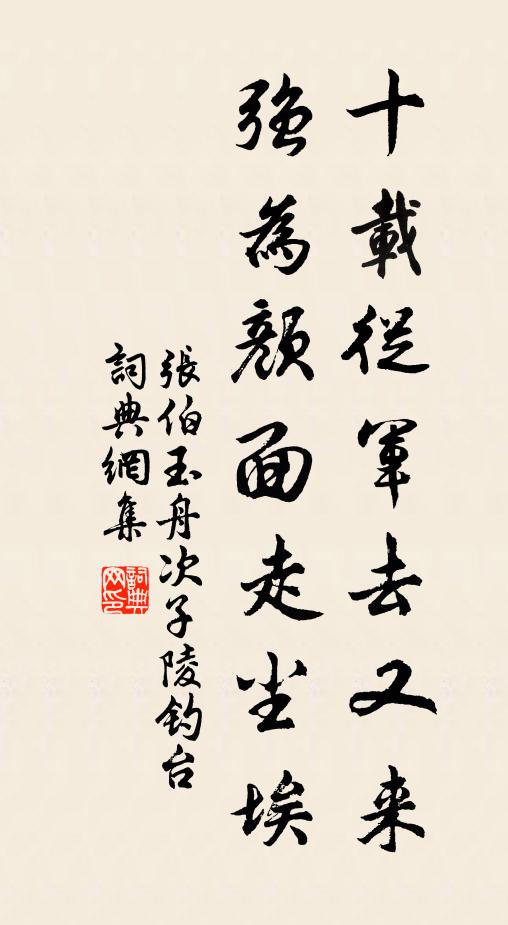 十載從軍去又来
強為顏面走尘埃
張伯玉舟次子陵钓台
詞典網集
詞典网印